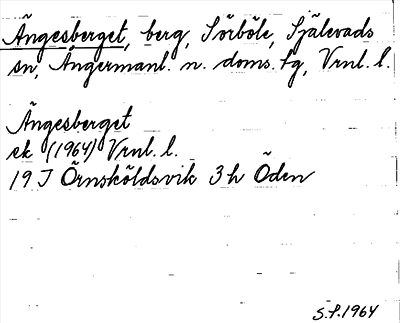 Ängesberget, berg, Sörböle, Själevads
sn, Ångermanl. n. doms. tg, Vrnl. l.
Ängesberget
ek (1964) Vrnl. l.
19 J Örnsköldsvik 3h Öden
S.P. 1964